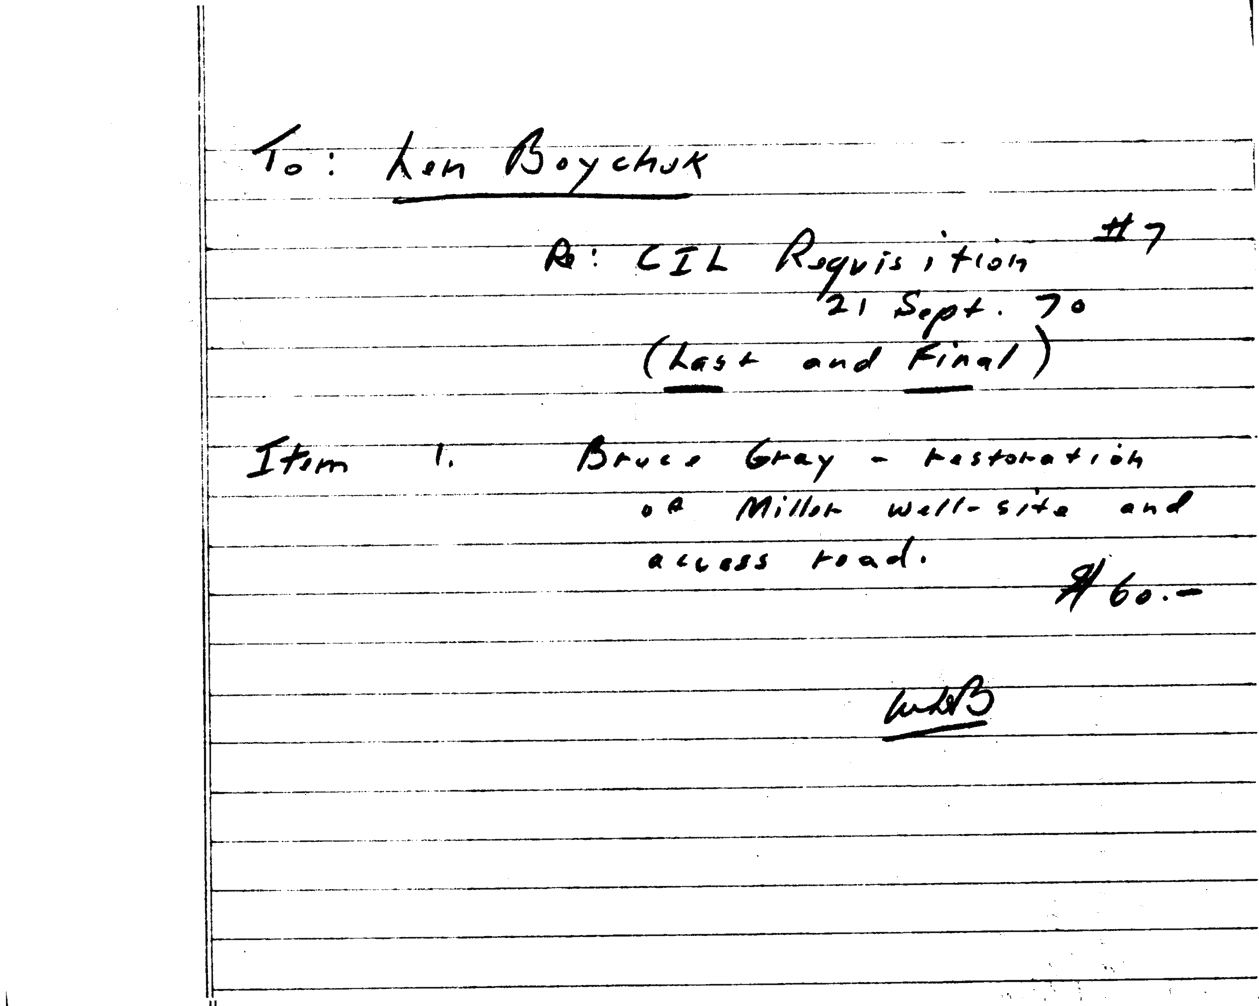 To: Len Boychuk
Re: CIL Requisition #7
21 Sept. 70
(Last and Final)
Item 1. Bruce Gray - restoration
of Miller well-site and
access road.
$60.-
WLB